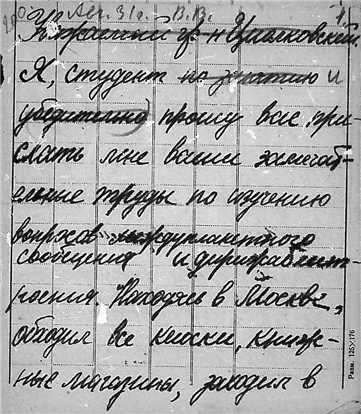 Авг. 31 г. В.В.
Уважаемый г-н Циолковский.
Я, студент по и
убедительно прошу вас при-
слать мне ваши замечат-
ельные труды по изучению
вопросов междупланетного
сообщения и дирижаблест-
роения. Находясь в Москве,
обходил все киоски, книж-
ные магазины, заходил в
Разм. 125×176